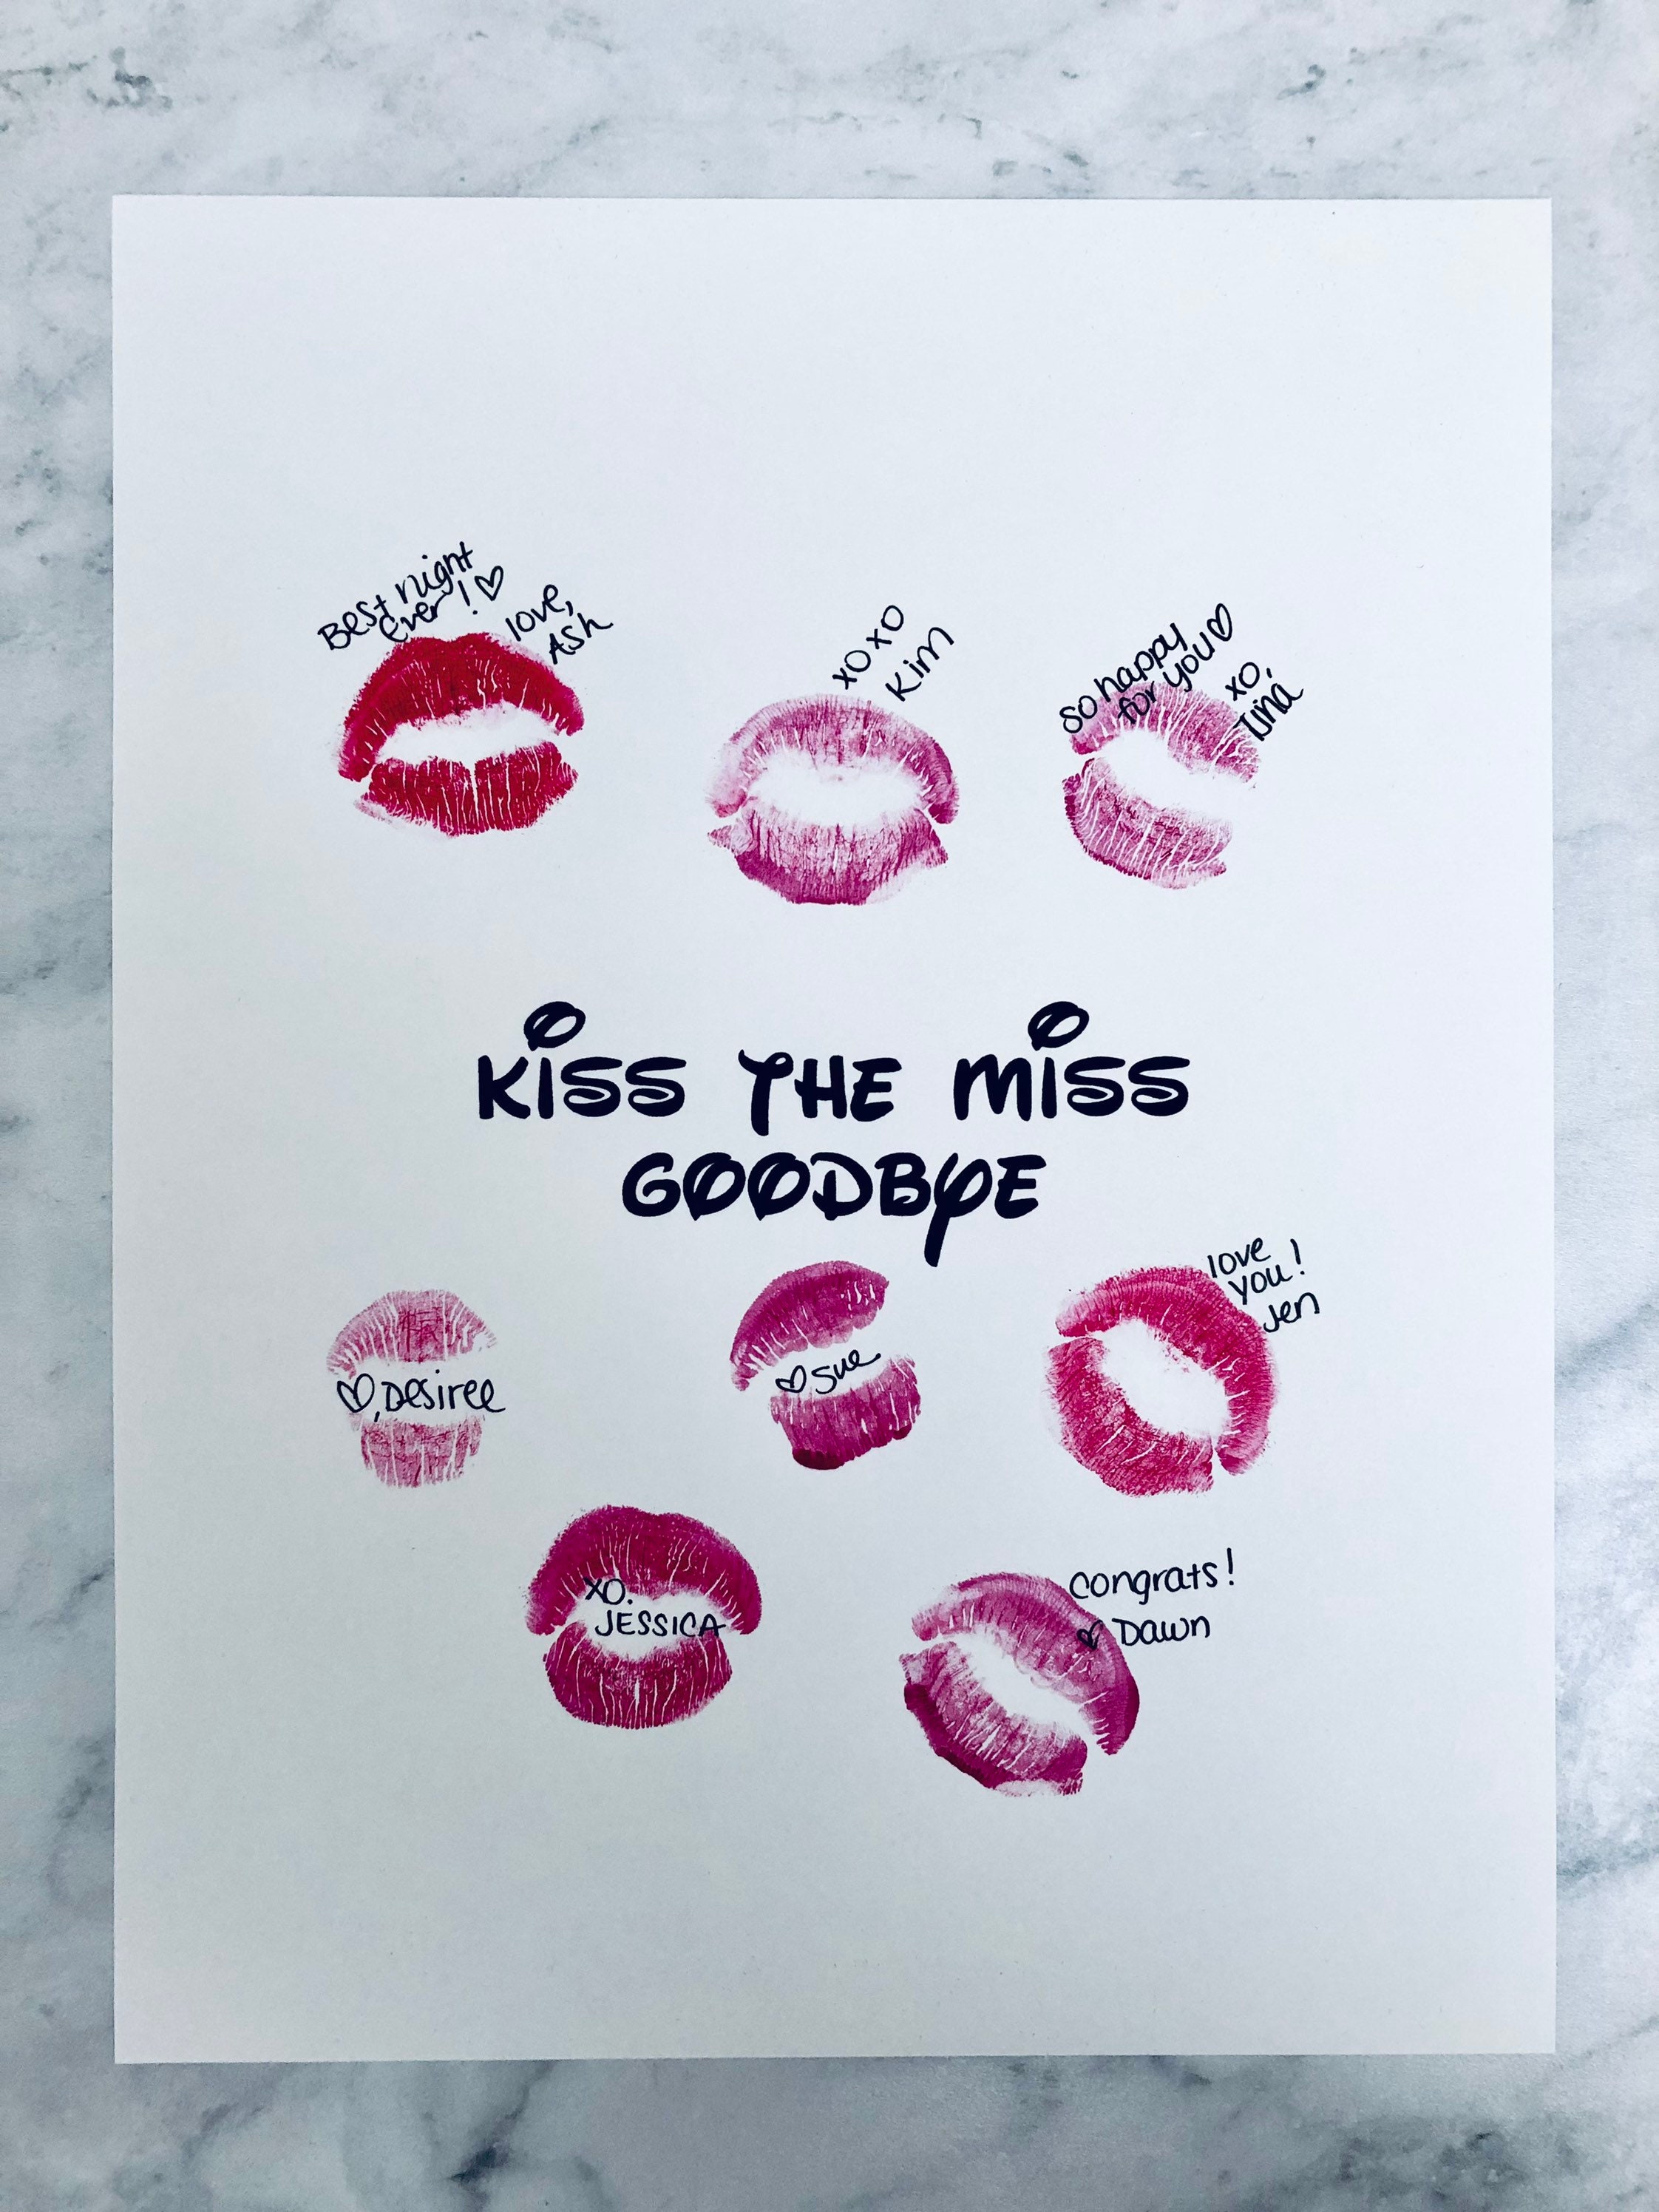 Best night
Ever! ♡
love,
Ash
xoxo
Kim
So happy
for you ♡
xo,
Tina
KISS THE MISS
GOODBYE
♡, Desiree
♡ Sue
love
you!
Jen
XO.
JESSICA
Congrats!
♡ Dawn